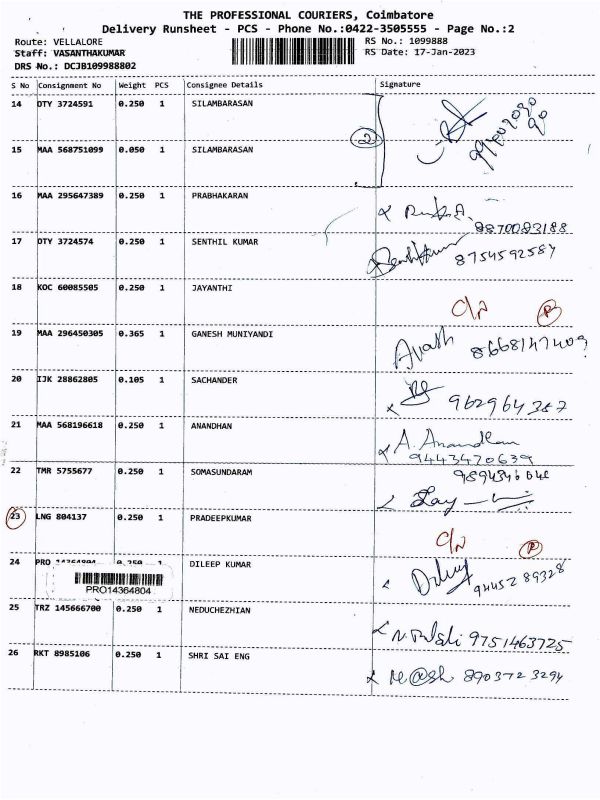 THE PROFESSIONAL COURIERS, Coimbatore
Delivery Runsheet - PCS - Phone No.:0422-3505555 - Page No.:2
Route: VELLALORE
RS No.: 1099888
Staff: VASANTHAKUMAR
RS Date: 17-Jan-2023
DRS No.: DCJB109988802
S No Consignment No Weight PCS Consignee Details Signature
14 OTY 3724591 0.250 1 SILAMBARASAN
2
15 MAA 568751099 0.050 1 SILAMBARASAN
16 MAA 295647389 0.250 1 PRABHAKARAN
8870083188
17 OTY 3724574 0.250 1 SENTHIL KUMAR Senthilkumar
8754592584
18 KOC 60085505 0.250 1 JAYANTHI
19 MAA 296450305 0.365 1 GANESH MUNIYANDI
20 IJK 28862805 0.105 1 SACHANDER
962964387
21 MAA 568196618 0.250 1 ANANDHAN A. Anandhan
9443470639
22 TMR 5755677 0.250 1 SOMASUNDARAM
23 LNG 804137 0.250 1 PRADEEPKUMAR
24 PRO 14364804 0.250 1 DILEEP KUMAR
9445289328
PRO14364804
25 TRZ 145666700 0.250 1 NEDUCHEZHIAN
9751463725
26 RKT 8985106 0.250 1 SHRI SAI ENG
8903723294